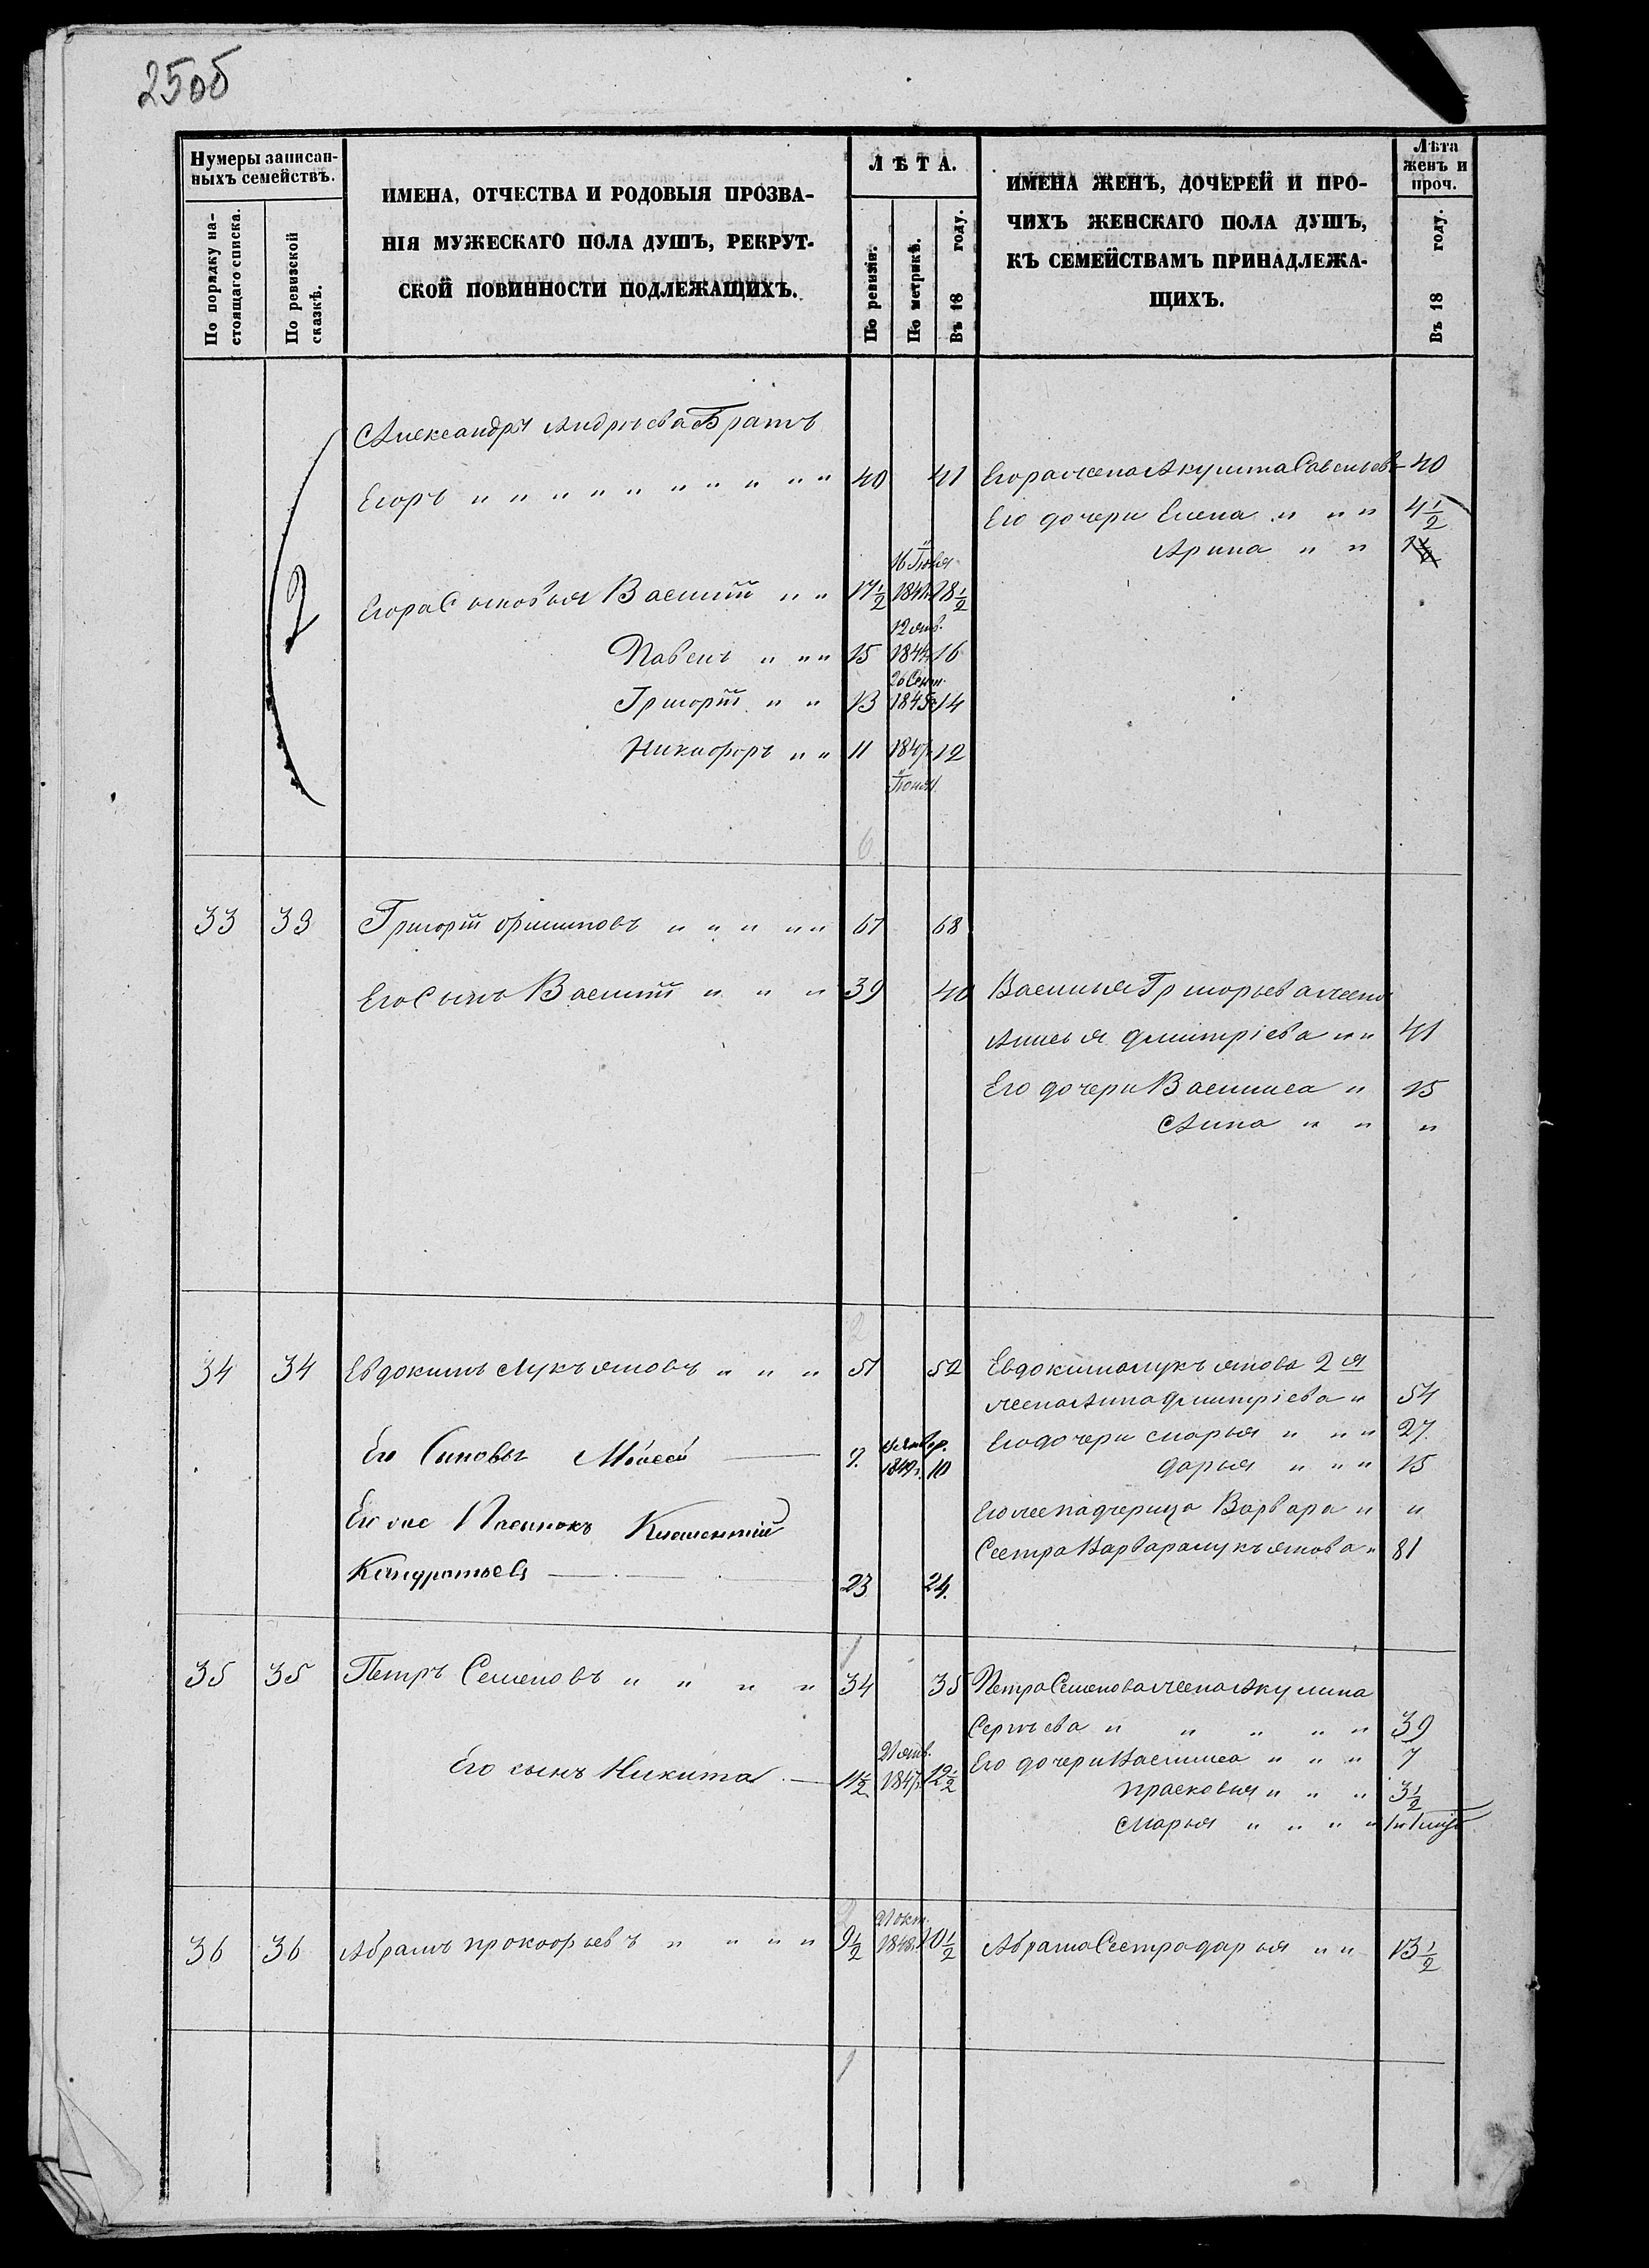 25об
Нумеры записан-
ныхъ семействъ.
По порядку на-
стоящаго списка.
По ревизской
сказкѣ.
ИМЕНА, ОТЧЕСТВА И РОДОВЫЯ ПРОЗВА-
НІЯ МУЖЕСКАГО ПОЛА ДУШЪ, РЕКРУТ-
СКОЙ ПОВИННОСТИ ПОДЛЕЖАЩИХЪ.
ЛѢТА.
По ревизіи.
По метрикѣ.
Въ 18 году.
ИМЕНА ЖЕНЪ, ДОЧЕРЕЙ И ПРО-
ЧИХЪ ЖЕНСКАГО ПОЛА ДУШЪ,
КЪ СЕМЕЙСТВАМЪ ПРИНАДЛЕЖА-
ЩИХЪ.
Лѣта
женъ и
проч.
Въ 18 году.
2
Александръ Андрѣева Братъ
Егоръ " " " " " " " " " " 40 41 Егора жена Акулина Савельева 40
Его дочери Елена " " " 4 1/2
Арина " "
16 Іюня
Егора Сыновья Василій " " 17 1/2 1841 18 1/2
12 янв.
Павелъ " " " 15 1844 16
26 Сент.
Григорій " " 13 1845 14
Никифоръ " " 11 1847 12
6
33 33 Григорій Филиповъ " " " " " 67 68
Его Сынъ Василій " " " 39 40 Василья Григорьева жена
Дмитріева " " 41
Его дочери Василиса " 15
Анна " " "
2
34 34 Евдокимъ Лукъяновъ " " " 51 52 Евдокима Лукъянова 2я
жена Анна Дмитріева " 54
Его дочери Марья " " " 27
Его Сыновья Моисей 9 1849 10
Дарья " " " 15
Его же падчерица Варвара " "
Его же Пасынокъ Климентій
Сестра Варвара Лукъянова " 81
Кандратьевъ 23 24
1
35 35 Петръ Семеновъ " " " " 34 35 Петра Семенова жена Акулина
Сергѣева " " " " " 39
21 янв.
Его сынъ Никита 11 1/2 1847 12 1/2 Его дочери Василиса " " " 7
Прасковья " " " 3 1/2
Марья " " " "
2
21 окт.
36 36 Абрамъ Прокофьевъ " " " " 9 1/2 1848 10 1/2 Абрама Сестра Дарья " " 13 1/2
1